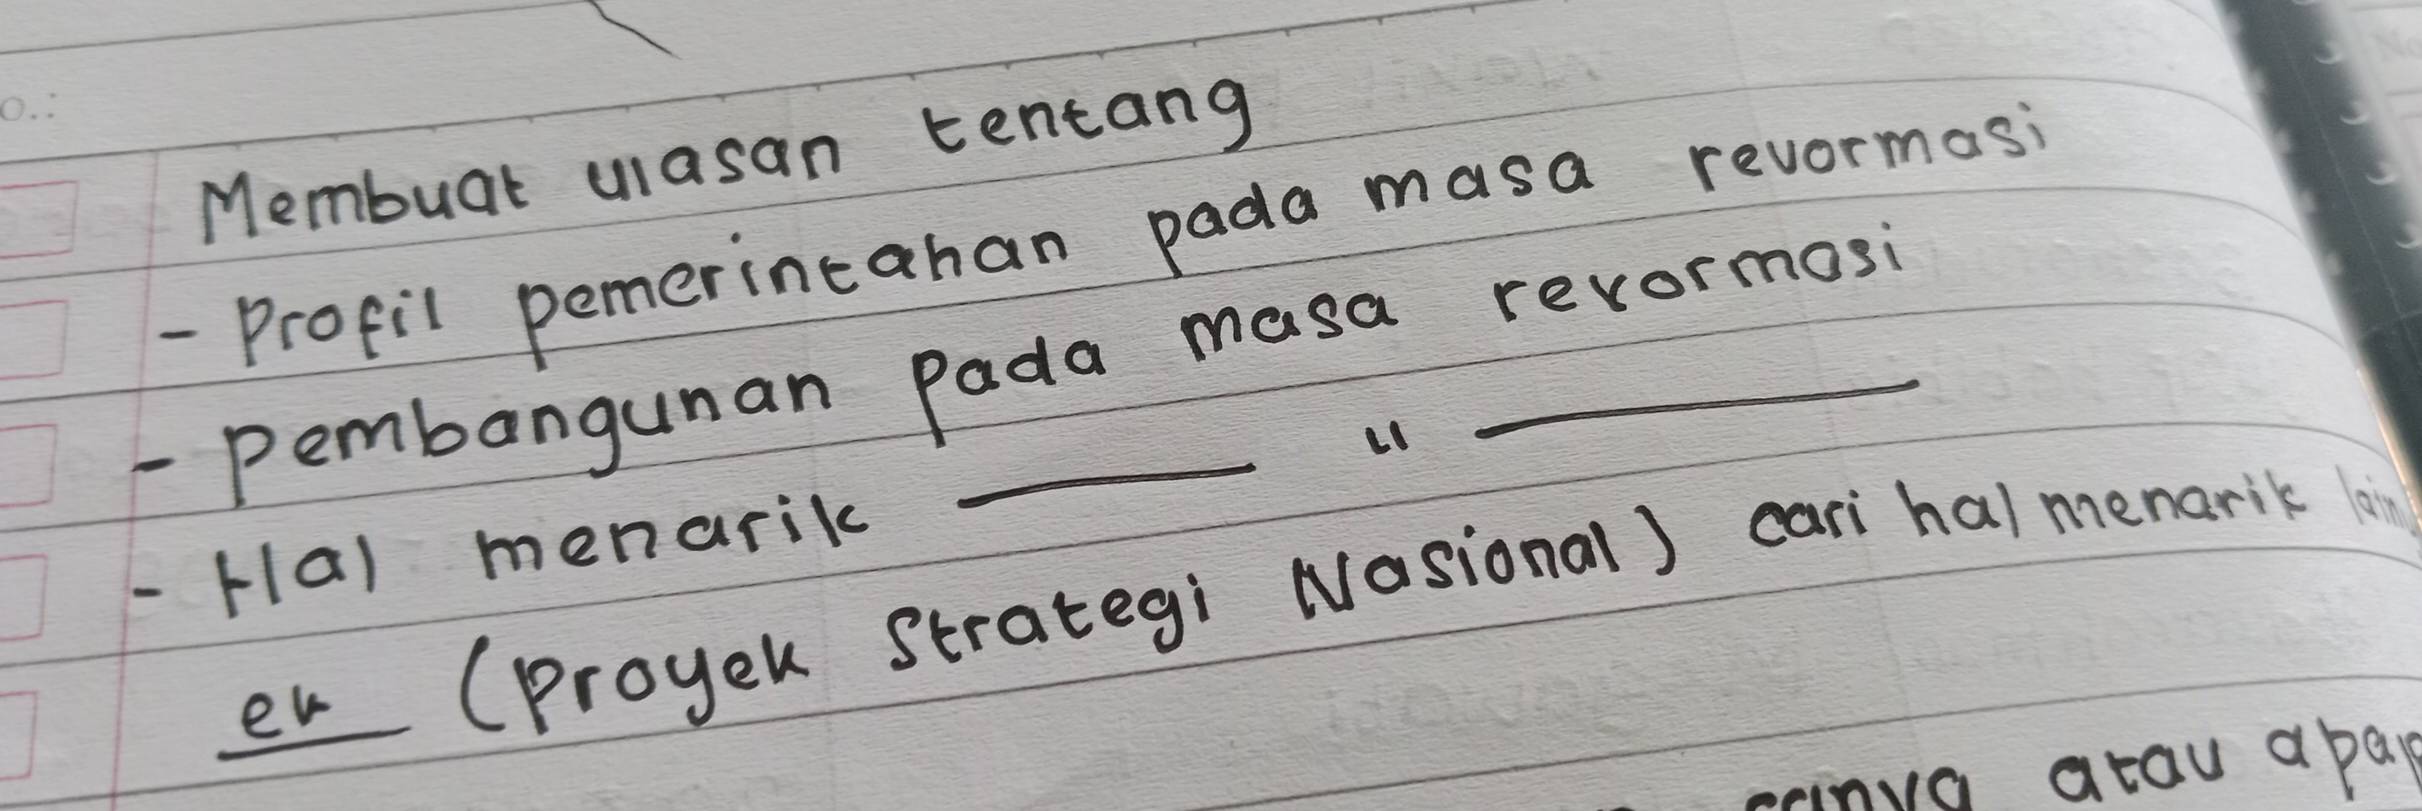 o.:
Membuat ulasan tentang
- Profil pemerintahan pada masa revormasi
- Pembangunan pada masa revormasi
- Hal menarik —— " ——
(Proyek Strategi Nasional) cari hal menarik lain
atau